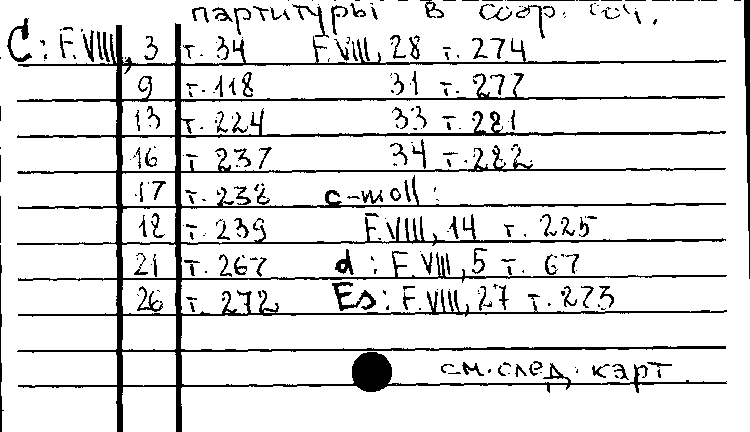 партитуры в собр. соч.
C: F.VIII, 3 т. 34 F.VIII, 28 т. 274
9 т. 118 31 т. 277
13 т. 224 33 т. 281
16 т. 237 34 т. 282
17 т. 238 c-moll:
18 т. 239 F.VIII, 14 т. 225
21 т. 267 d: F.VIII, 5 т. 67
26 т. 272 Es: F.VIII, 27 т. 273
см. след. карт.